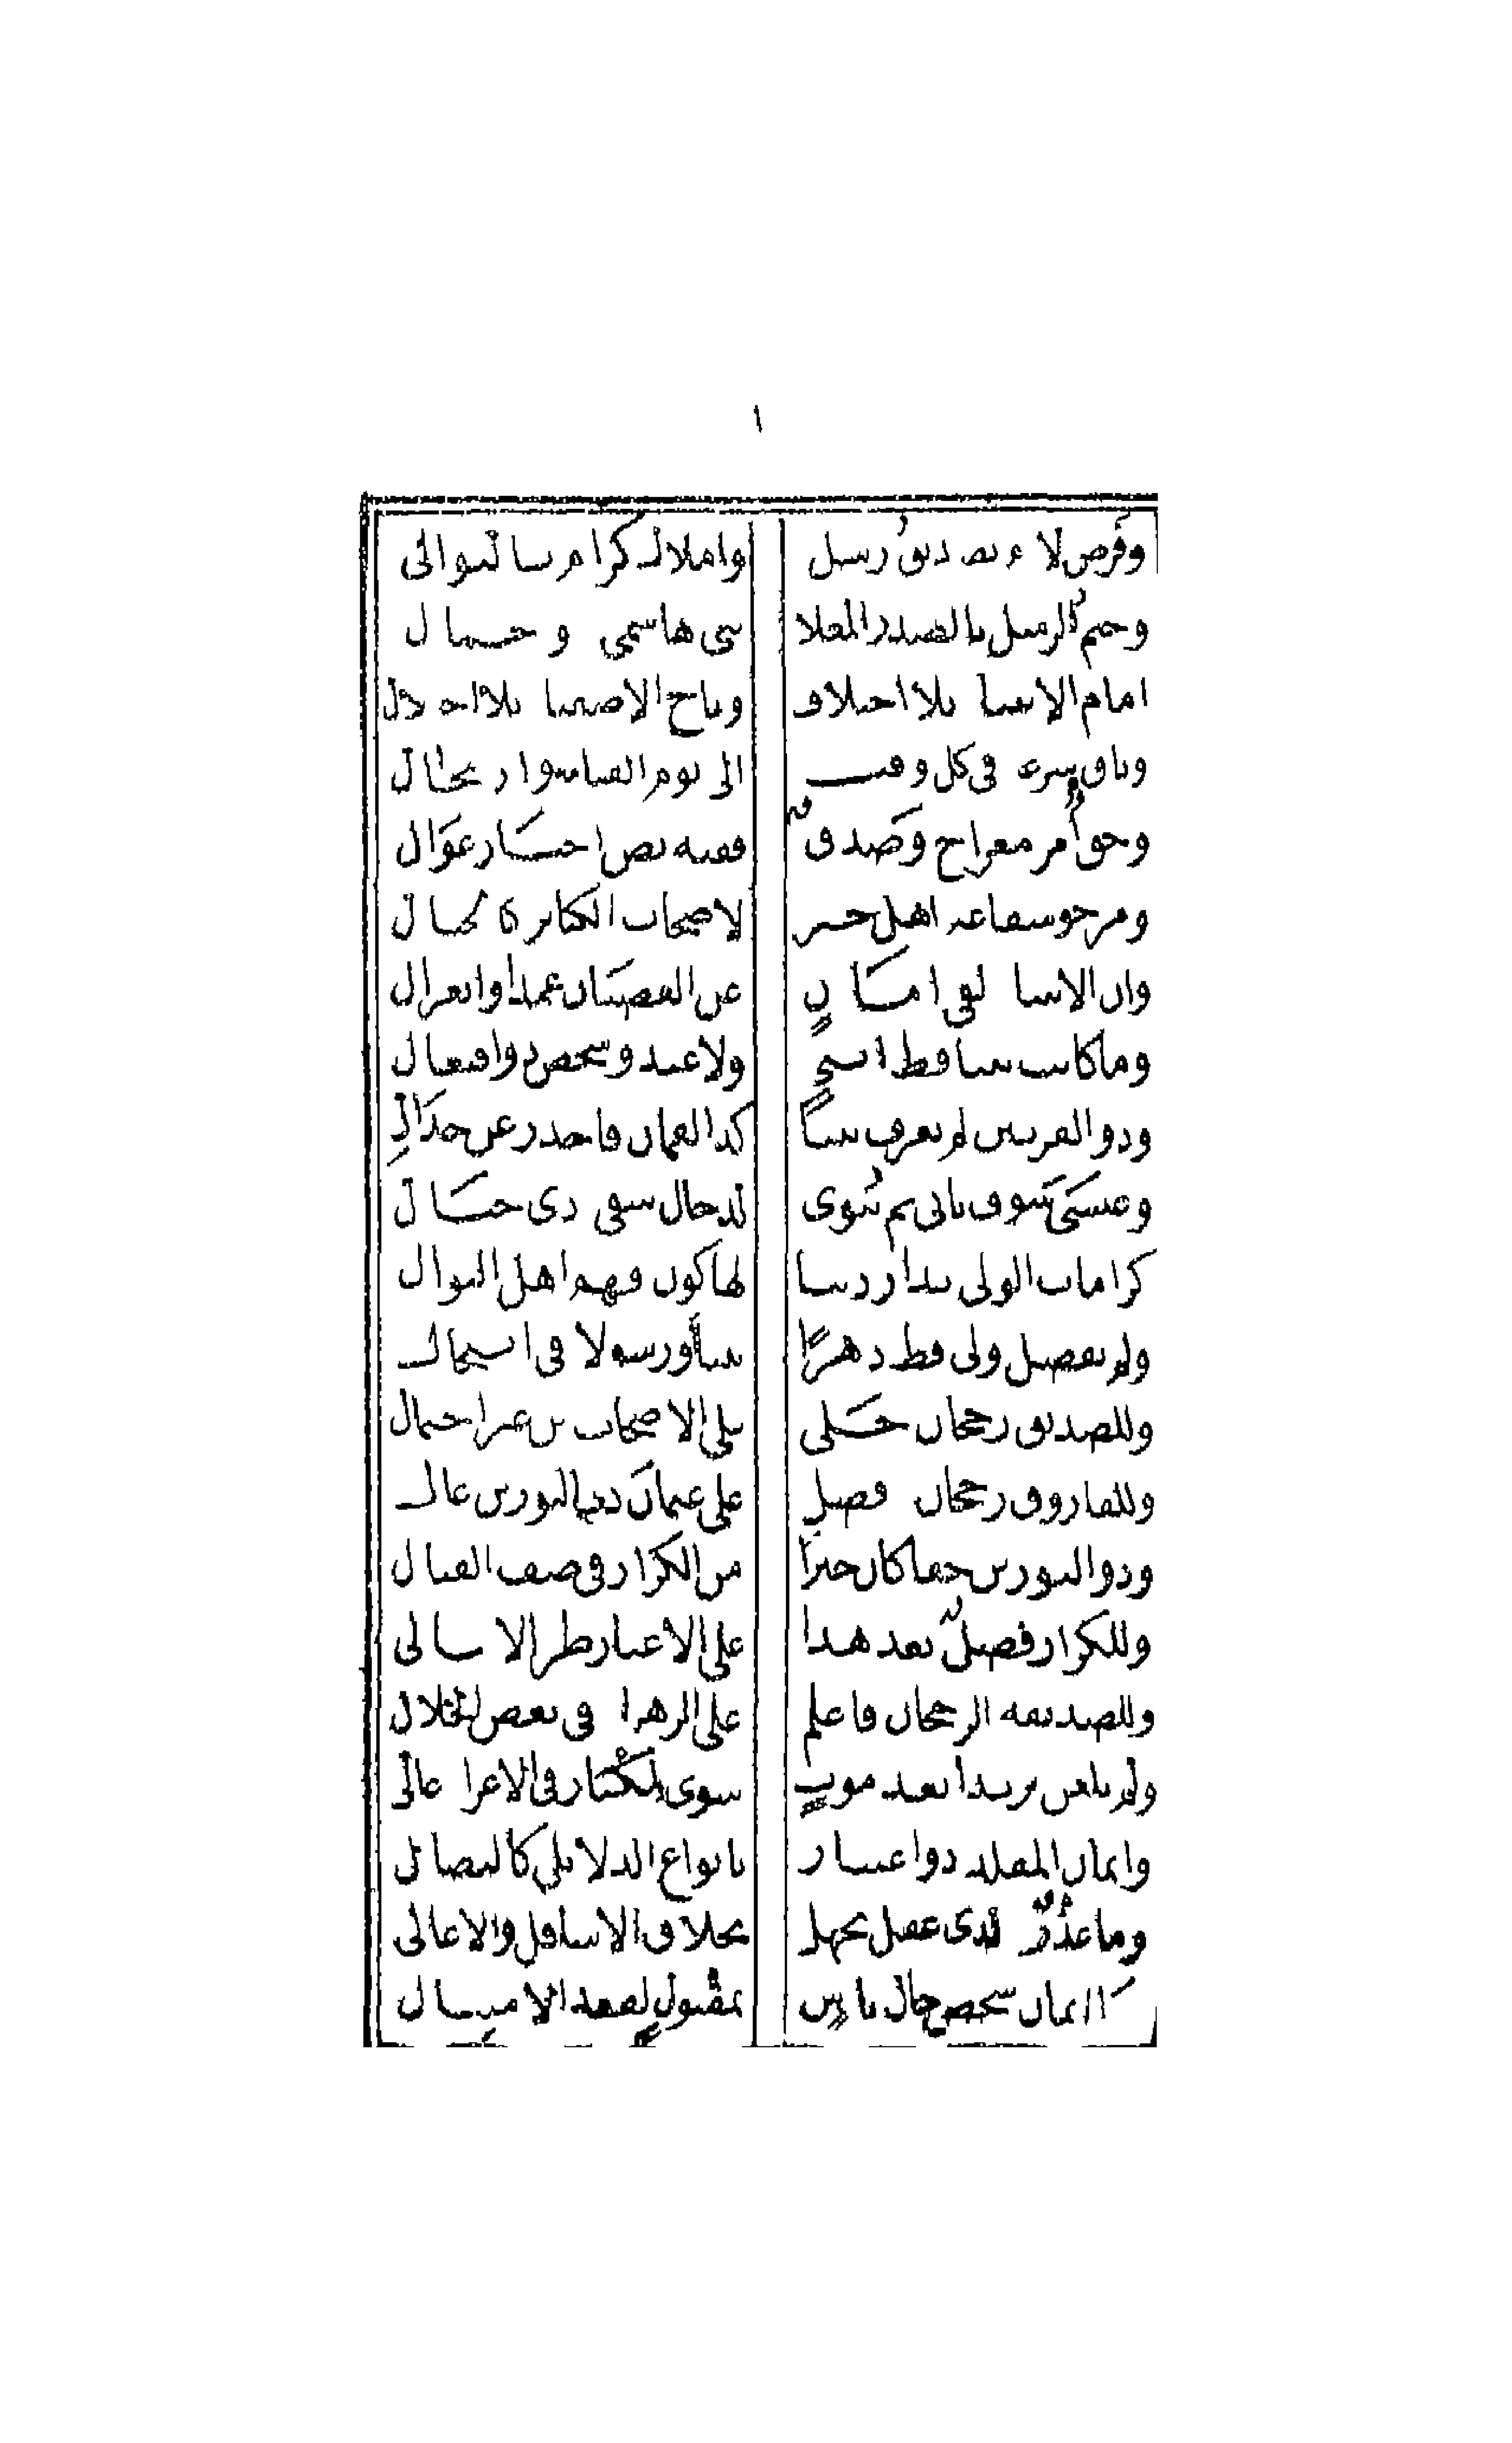 وفرض لازم تصديقُ رسل واملاك كرام بالتوالى
وختم الرسل بالصدر المعلا نبى هاشمى ذو جمال
امام الانبيا بلا اختلاف وتاج الاصفيا بلا اختلال
وباق شرعه فى كل وقت الى يوم القيامه وارتحال
وحق امر معراج وصدق ففيه نص اخبار عوال
ومرجو شفاعه اهل خير لاصحاب الكبائر كالجبال
وان الانبيا لفى امان عن العصيان عمدا وانعزال
وما كانت نبيا قط انثى ولا عبد وشخص ذو افتعال
وذو القرنين لم يعرف نبيا كذا لقمان فاحذر عن جدال
وعيسى سوف ياتى ثم يتوى لدجال شقى ذى خبال
كرامات الولى بدار دنيا لها كون فهم اهل النوال
ولم يفضل ولى قط دهرًا نبيا ورسولا فى انتحال
وللصديق رجحان جلى على الاصحاب من غير احتمال
وللفاروق رجحان فضل على عثمان ذى النورين عال
وذو النورين حقا كان خيرا من الكرار فى صف القتال
وللكرار فضل بعد هذا على الاغيار طرا لا تبالى
وللصديقه الرجحان فاعلم على الزهرا فى بعض الخلال
ولم يلعن يزيدا بعد موت سوى المكثار فى الاغرا غالى
وايمان المقلد ذو اعتبار بانواع الدلائل كالنصال
وما عذر لذى عقل بجهل بخلاق الاسافل والاعالى
ايمان شخص حال ياس بمقبول لفقد الامتثال